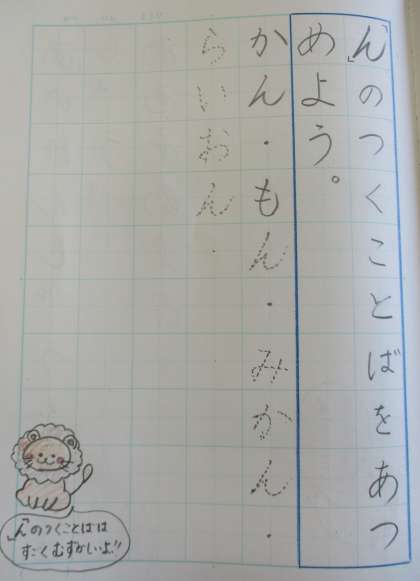 「ん」のつくことばをあつ
めよう。
かん・もん・みかん・
らいおん・
「ん」のつくことばは
すごくむずかしいよ!!